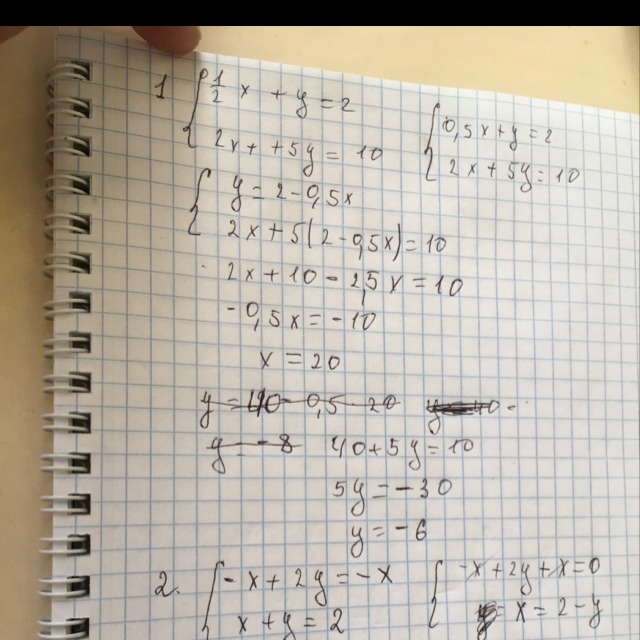 1 { 1/2 x + y = 2
2x + +5y = 10
{ 0,5x+y=2
2x+5y=10
{ y = 2-0,5x
2x+5(2-0,5x)=10
2x+10-2,5x=10
-0,5x=-10
x = 20
y = 10-0,5 20
y = -8
40+5y=10
5y=-30
y=-6
2. { -x+2y=-x
x+y=2
{ -x+2y+x=0
x=2-y